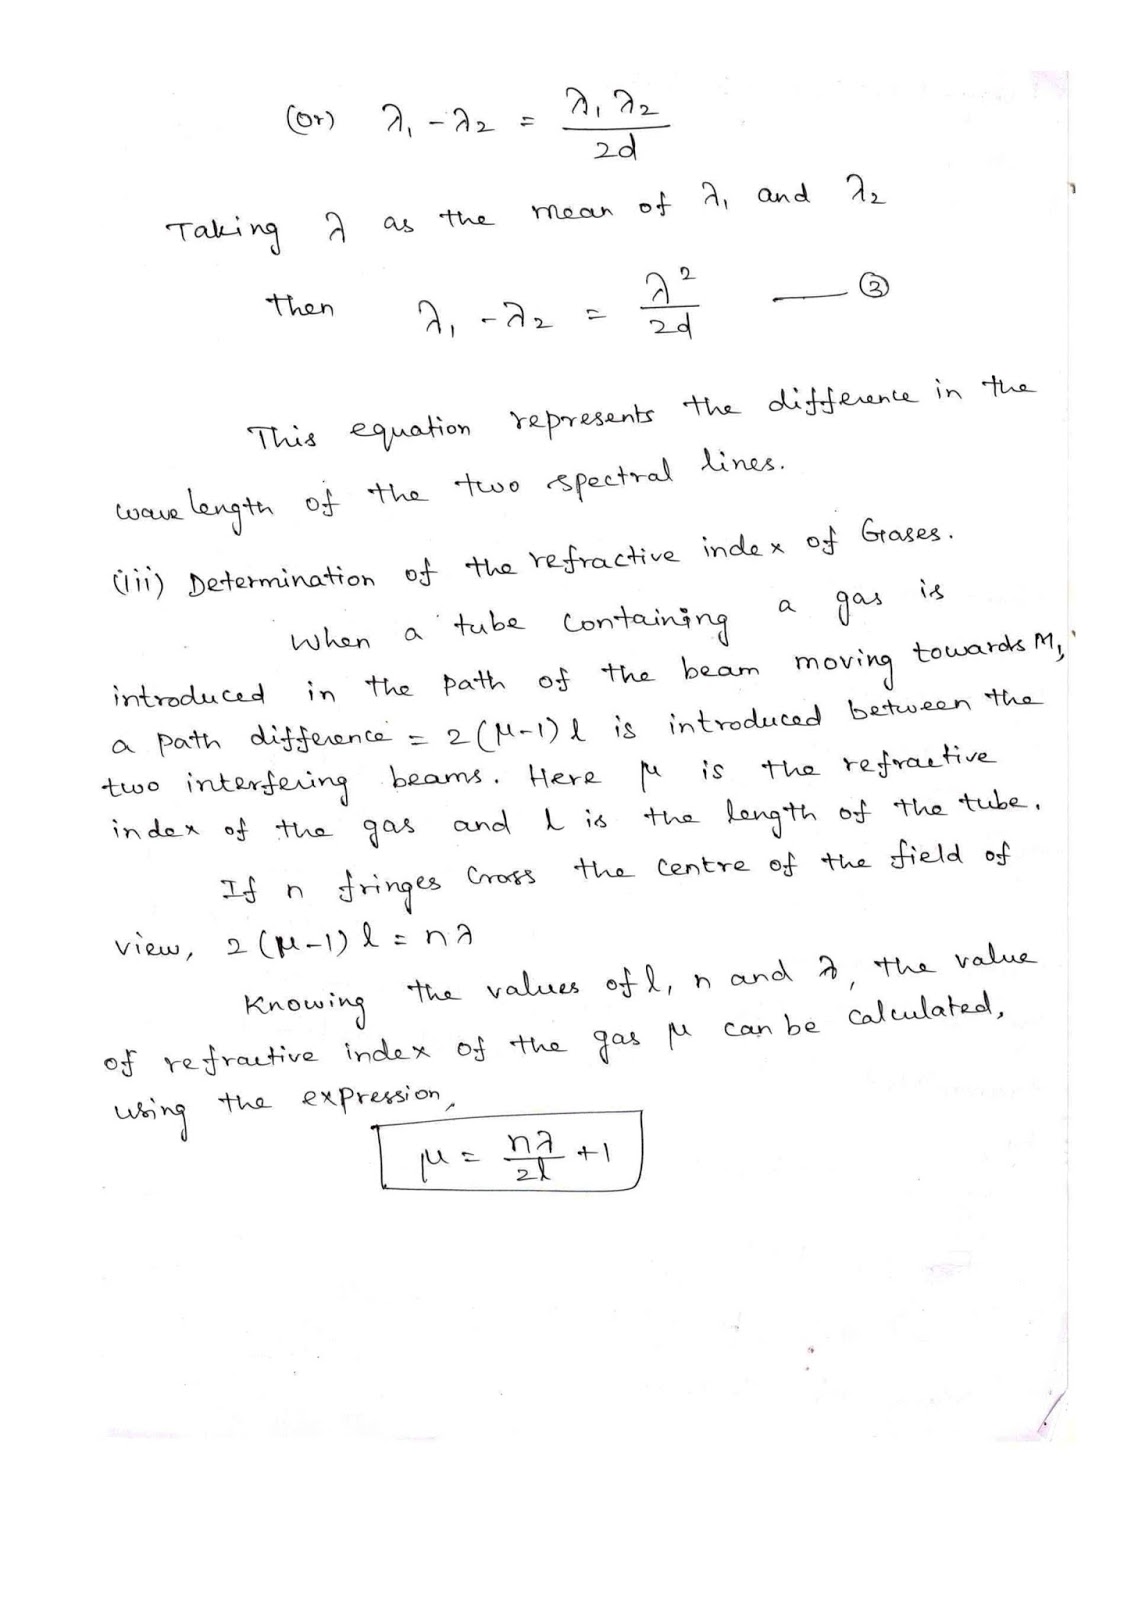 (or) λ₁ - λ₂ = λ₁ λ₂ / 2d
Taking λ as the mean of λ₁ and λ₂
then λ₁ - λ₂ = λ² / 2d — ③
This equation represents the difference in the
wavelength of the two spectral lines.
(iii) Determination of the refractive index of Gases.
When a tube containing a gas is
introduced in the path of the beam moving towards M₁,
a path difference = 2(μ-1) l is introduced between the
two interfering beams. Here μ is the refractive
index of the gas and l is the length of the tube.
If n fringes cross the centre of the field of
view, 2(μ-1) l = nλ
Knowing the values of l, n and λ, the value
of refractive index of the gas μ can be calculated,
using the expression,
μ = nλ / 2l + 1